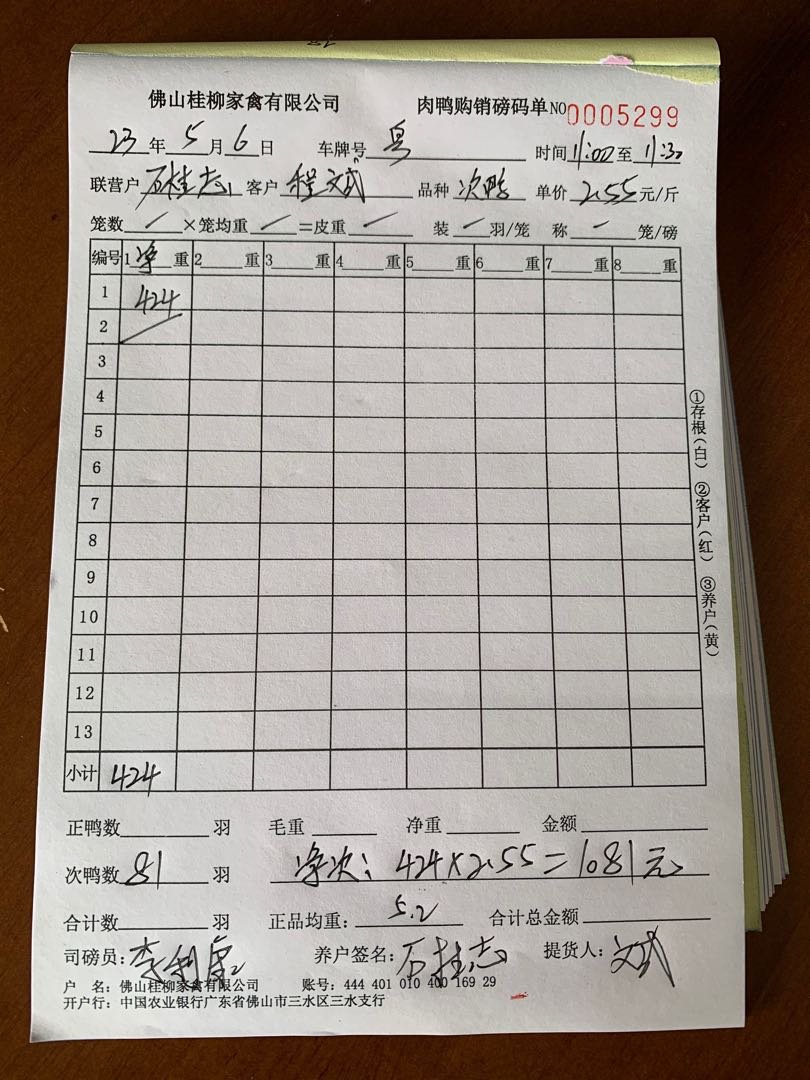 佛山桂柳家禽有限公司 肉鸭购销磅码单 NO 0005299
23 年 5 月 6 日 车牌号 粤 时间 11:00 至 11:30
联营户 石桂志 客户 程文武 品种 次鸭 单价 2.55 元/斤
笼数 / ×笼均重 / =皮重 / 装 / 羽/笼 称 / 笼/磅
编号 1 净 重 2 重 3 重 4 重 5 重 6 重 7 重 8 重
1 424
2
3
4
5
6
7
8
9
10
11
12
13
小计 424
①存根(白) ②客户(红) ③养户(黄)
正鸭数 羽 毛重 净重 金额
次鸭数 81 羽 净次: 424×2.55=1081元
合计数 羽 正品均重: 5.2 合计总金额
司磅员: 养户签名: 石桂志 提货人: 文武
户 名: 佛山桂柳家禽有限公司 账号: 444 401 010 400 169 29
开户行: 中国农业银行广东省佛山市三水区三水支行